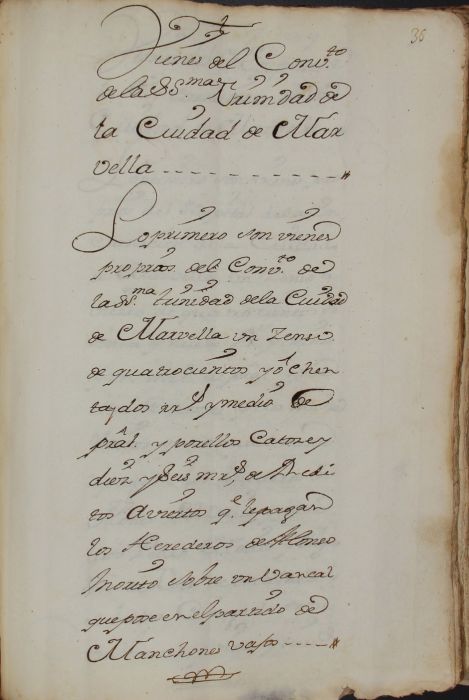 36
Vienes del Conv.to
de la SS.ma trinidad de
la Ciudad de Mar
vella
Lo primero son vienes
propios del Conv.to de
la SS.ma trinidad de la Ciudad
de Marvella un Zenso
de quatrocientos y ochen
ta y dos rr.s y medio de
pral. y por ellos Catorze y
diez y seis mrs. de Redi
tos aviertos q.e le pagan
los Herederos de Alonso
sobre un Vancal
que posee en el partido de
Manchones vaxo